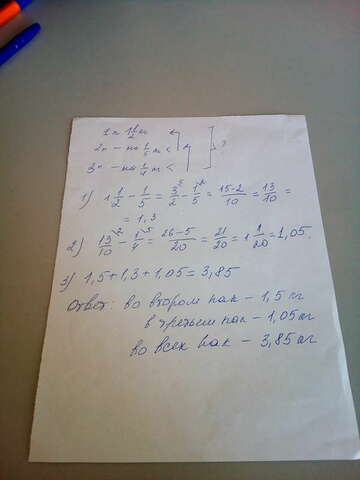 1 п - 1 1/2 кг
2 п - на 1/5 м <
3 п - на 1/4 м < ?
1) 1 1/2 - 1/5 = 3/2 - 1/5 = 15-2/10 = 13/10 =
= 1,3
2) 13/10 - 1/4 = 26-5/20 = 21/20 = 1 1/20 = 1,05.
3) 1,5+1,3+1,05=3,85
Ответ: во втором пак - 1,5 кг
в третьем пак - 1,05 кг
во всех пак - 3,85 кг